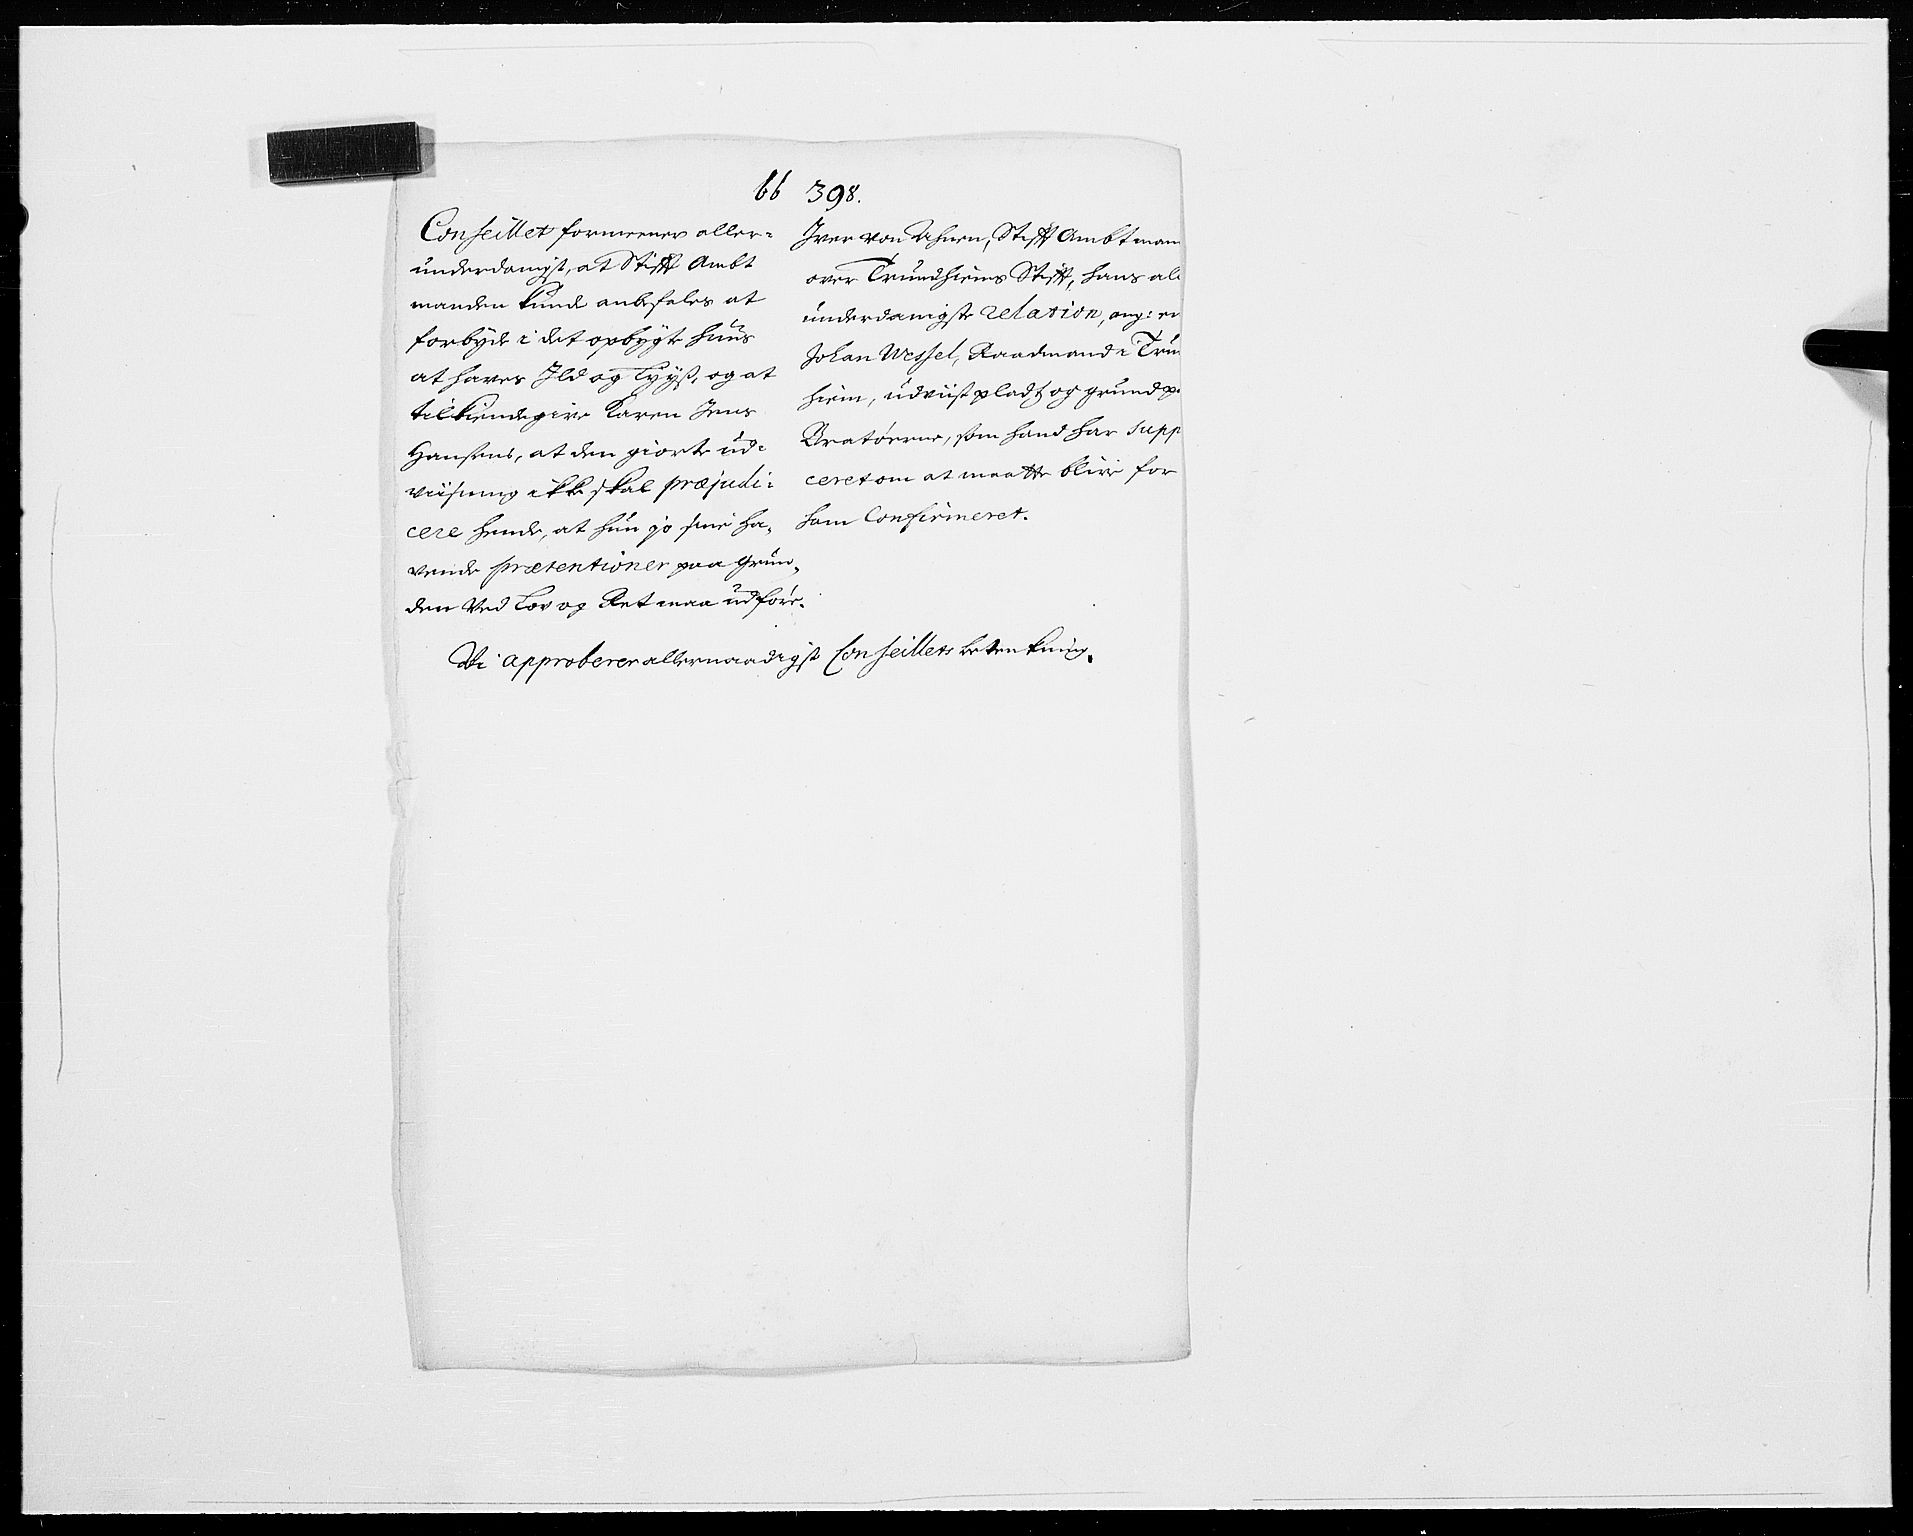 66 398.
Conseillet formeener aller-
underdanigst, at Stifft Ambt
manden kunde anbefales at
forbyde i det opbygte Huus
at haves Ild og Lyyß, og at
tilkiendegive Karen Jens
Hansens, at den giorte ud-
viisning ikke skal præjudi-
cere hende, at hun jo sine ha-
vende prætentioner paa Grun-
den ved Lov og Ret maa udføre.
Iver von Ahnen, Stifft Ambtman
over Trundhiems Stifft, hans al
underdanigste relation, ang: en
Johan Wessel, Raadmand i Trun
hiem, udviist pladtz og grund p
Bratøerne, som hand har supp
ceret om at maatte blive for
ham Confirmeret.
Vi approberer allernaadigst Conseillets betenkning.